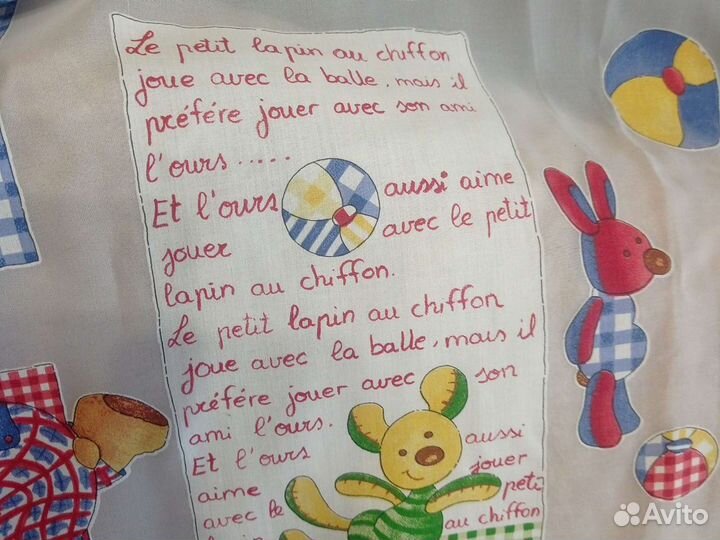 Le petit lapin au chiffon
joue avec la balle, mais il
préfére jouer avec son ami
l'ours.....
Et l'ours aussi aime
jouer avec le petit
lapin au chiffon.
Le petit lapin au chiffon
joue avec la balle, mais il
préfére jouer avec son
ami l'ours.
Et l'ours aussi
aime jouer
avec le peti
au chiffon
Avito